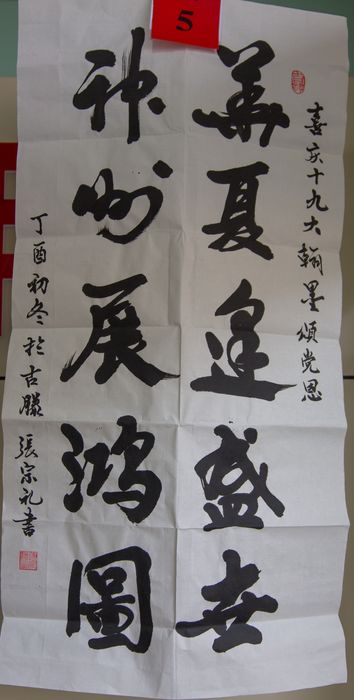 5
喜庆十九大翰墨頌党恩
華夏逢盛世
神州展鸿圖
丁酉初冬於古滕張宗礼書